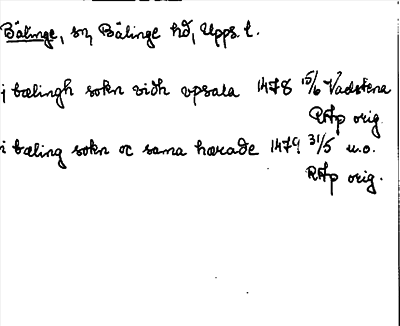 Bälinge, sn, Bälinge hd, Upps l.
j bælingh sokn vidh vpsala 1478 15/6 Vadstena
RAp orig.
i bæling sokn oc sama hærade 1479 31/5 u.o.
RAp orig.